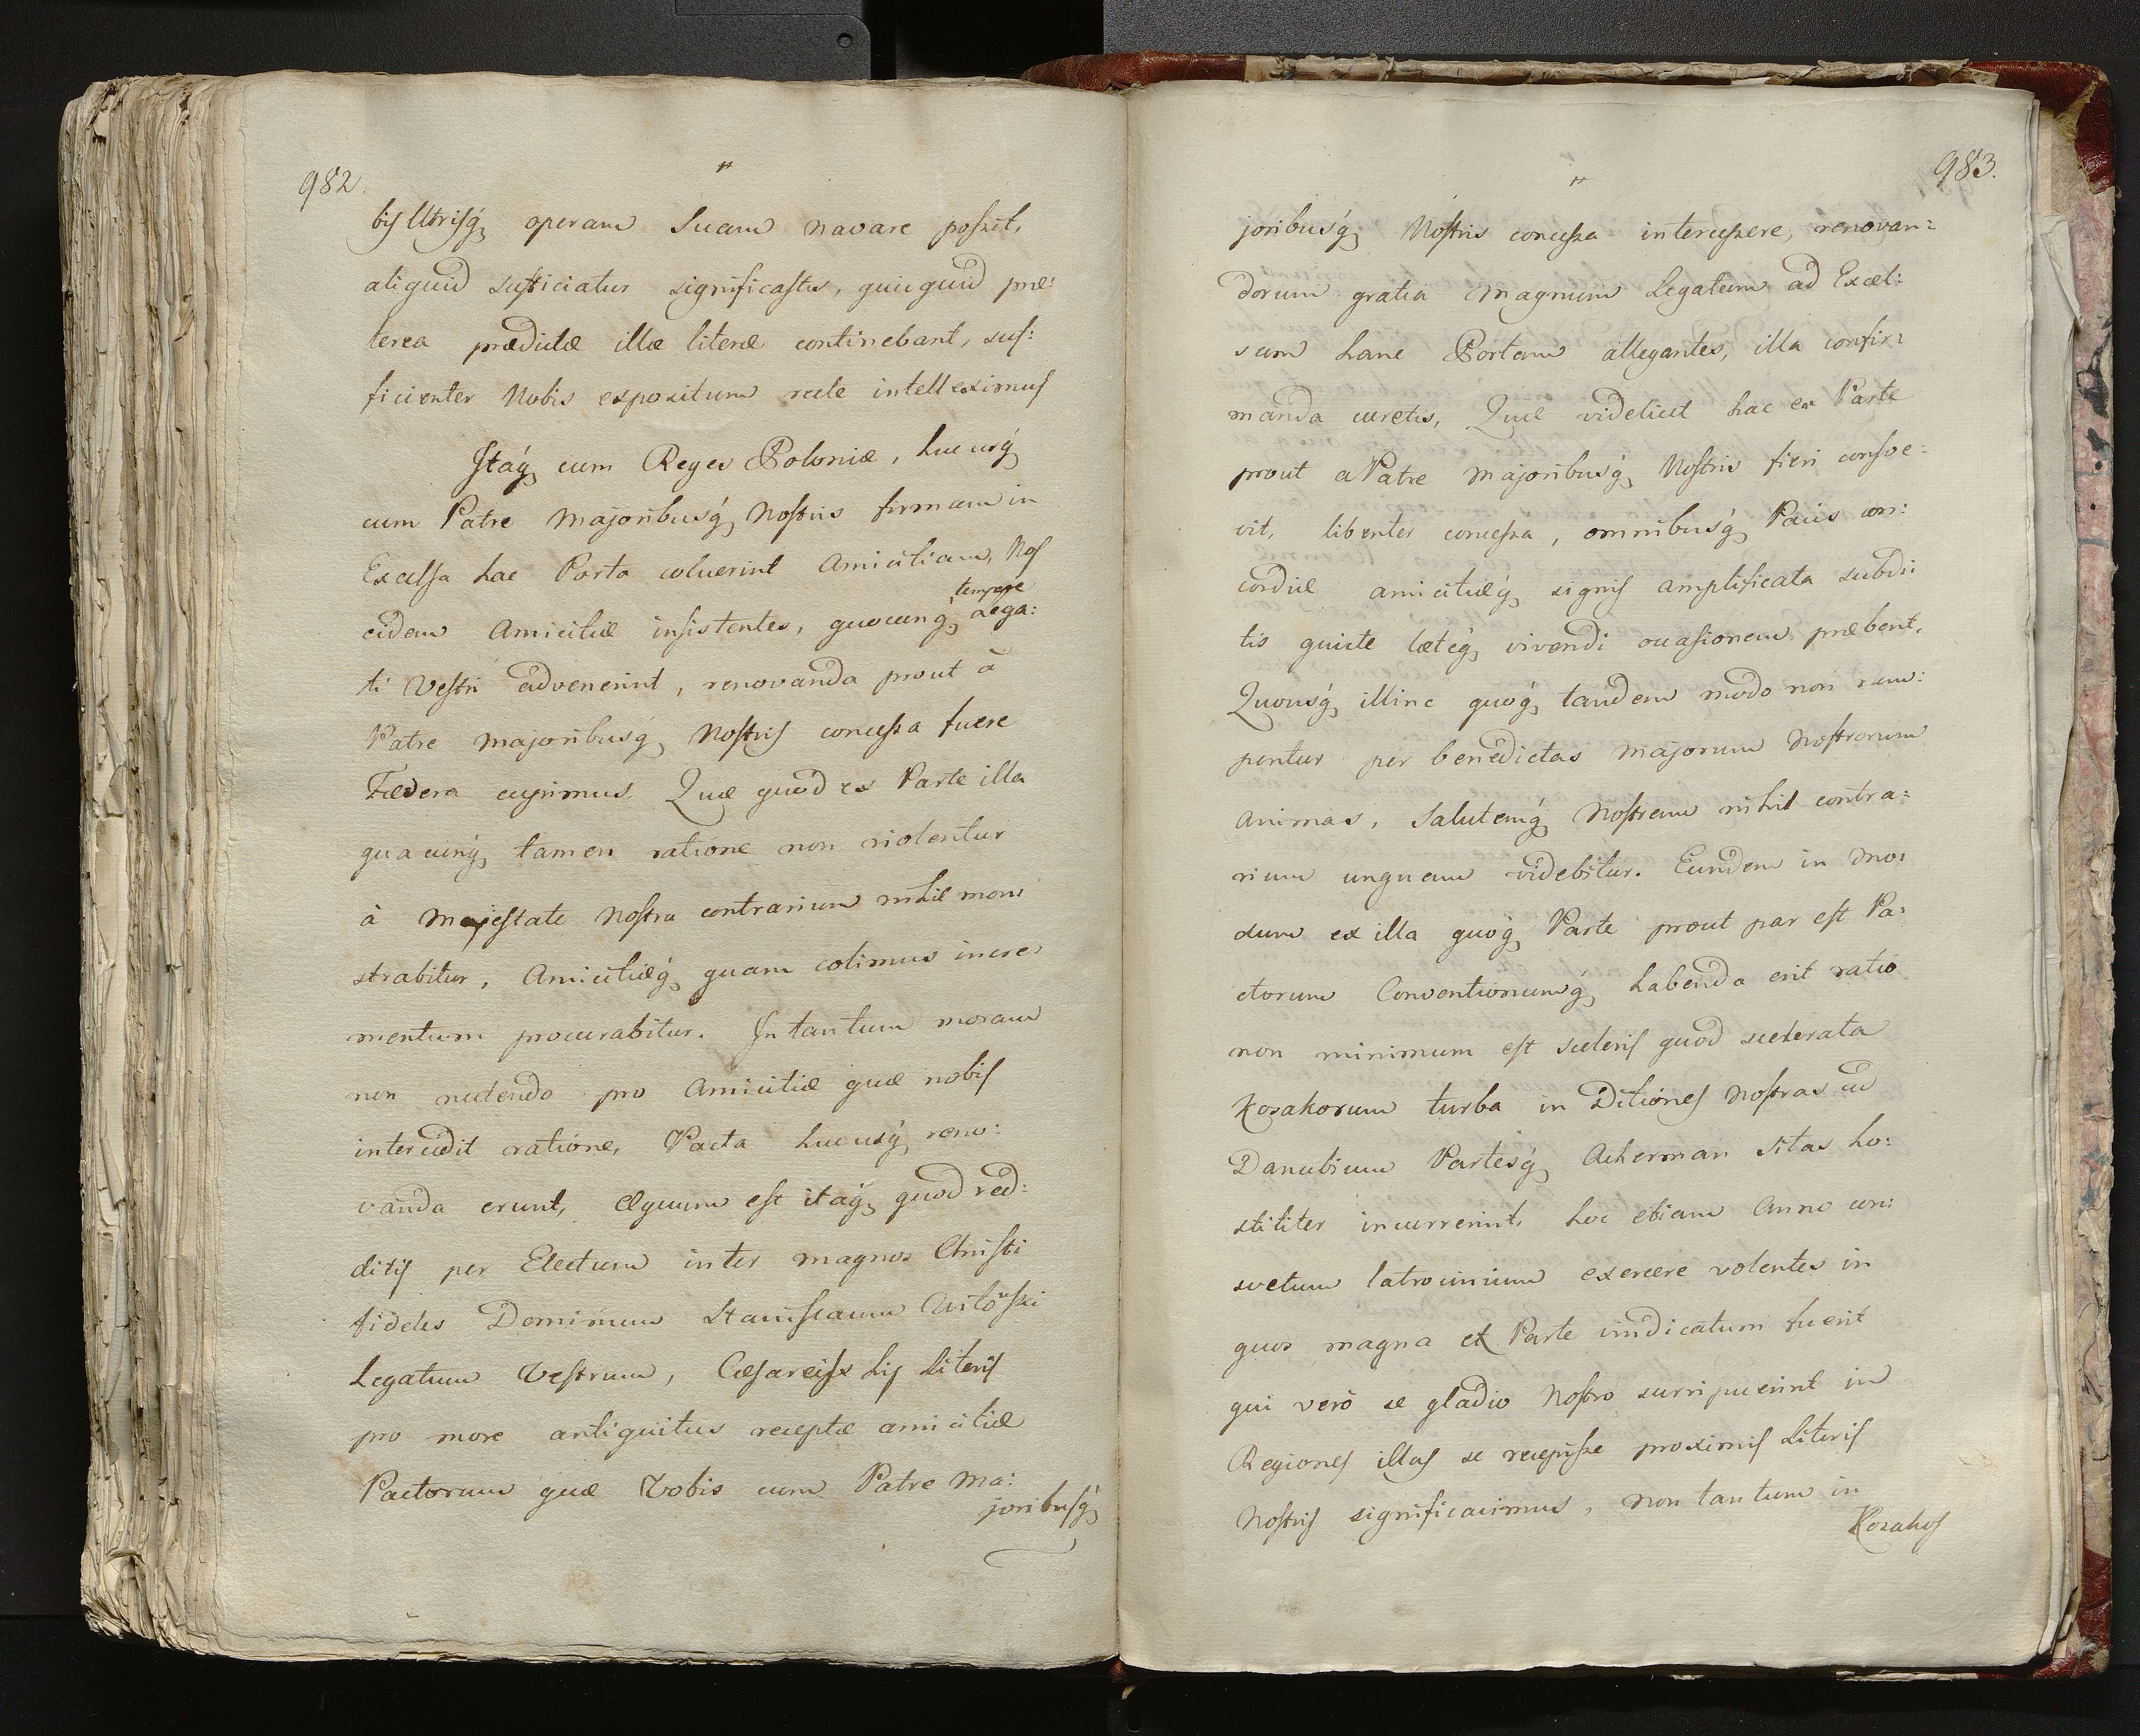 982.
bis Utrisq, operam Suam navare possit,
aliquid suspiciatur significastis, quicquid præ:
terea prædictæ illæ literæ continebant, suf:
ficienter Nobis expositum recte intelleximus
Itaq, cum Reges Poloniæ, hucusq
cum Patre Majoribusq, Nostris firmam in
Excelsa hac Porta coluerint Amicitiam, Nos
eidem Amicitiæ insistentes, quocunq, tempore Lega:
ti Vestri advenerint, renovanda prout à
Patre Majoribusq, Nostris concessa fuere
Fædera cupimus. Quæ quod ex Parte illa
quacunq, tamen ratione non violentur
à Majestate Nostra contrarium nihil mon:
strabitur, Amicitiæq, quam colimus incre:
mentum procurabitur. In tantum moram
non nectendo pro Amicitiæ quæ nobis
intercedit ratione, Pacta hucusq, reno:
vanda erunt, Æquum est itaq, quod red:
ditis per Electum inter magnos Christi
fideles Dominum Stanisłaum
Legatum Vestrum, Cæsareis his Literis
pro more antiquitus receptæ amicitiæ
Pactorum quæ Vobis cum Patre Ma:
joribusq,
983.
joribusq, Nostris concessa intercessere, renovan:
dorum gratia Magnum Legatum ad Excel:
sam hanc Portam allegantes, illa confir:
manda curetis, Quæ videlicet hac ex Parte
prout a Patre Majoribusq, Nostris fieri consve:
vit, libenter concessa, omnibusq, Pacis con:
cordiæ amicitiæq, signis amplificata subdi:
tis quiete læteq, vivendi occasionem præbent,
Quousq, illinc quoq, tandem modo non rum:
pentur per benedictas Majorum Nostrorum
animas, Salutemq, Nostram nihil contra:
rium unquam videbitur. Eundem in Mo:
dum ex illa quoq, Parte prout par est Pa:
ctorum Conventionumq, habenda erit ratio
non minimum est sceleris quod scelerata
Kozakorum turba in Ditiones Nostras ad
Danubium Partesq, Ackerman sitas ho:
stiliter incurrerint, hoc etiam Anno con:
svetum latrocinium exercere volentes in
quos magna ex Parte vindicatum fuerit
qui verò se gladio Nostro surripuerint in
Regiones illas se recepisse proximis Literis
Nostris significavimus, non tantum in
Kozakos